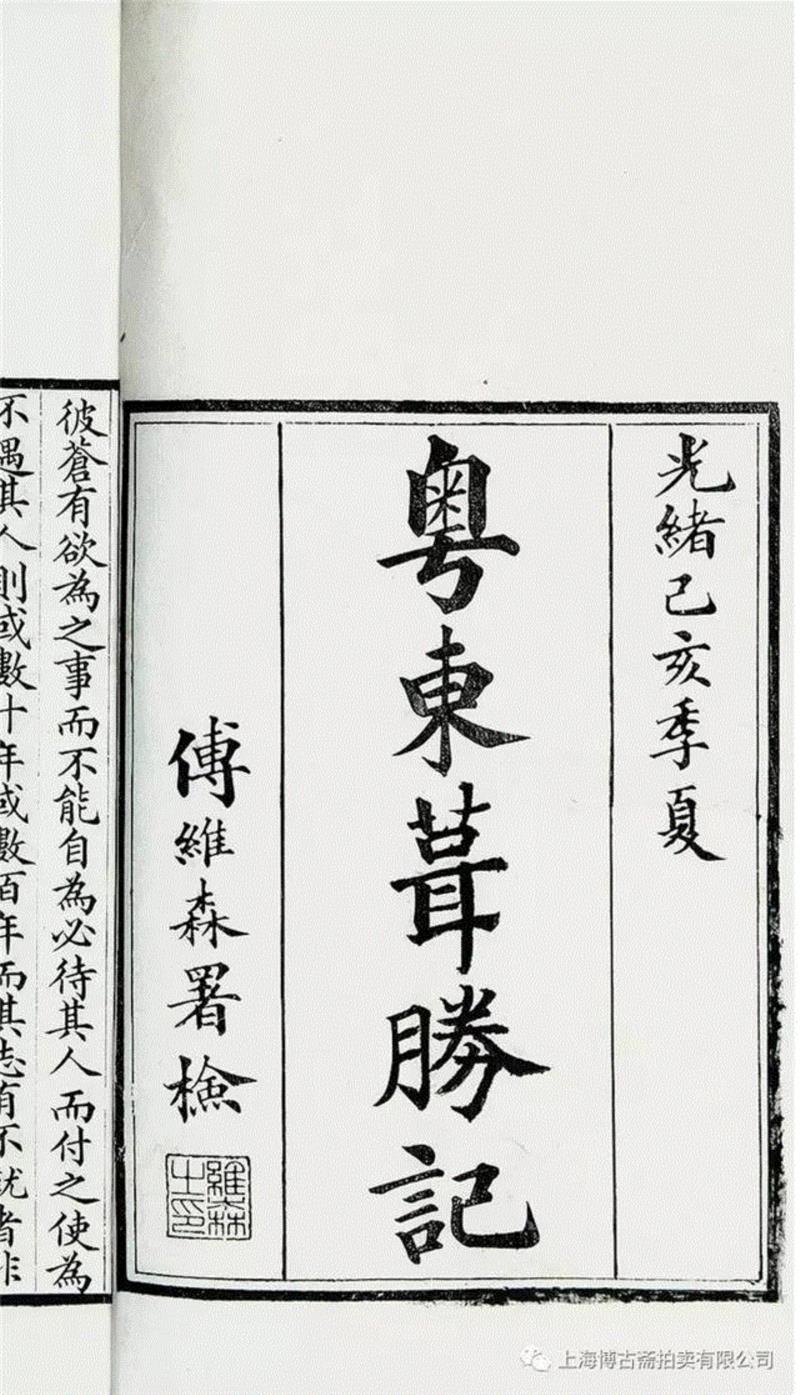 光緒己亥季夏
粵東葺勝記
傅維森署檢
維森之印
彼蒼有欲為之事而不能自為必待其人而付之使為
不遇其人則或數十年或數百年而其志有不就者非
上海博古斋拍卖有限公司